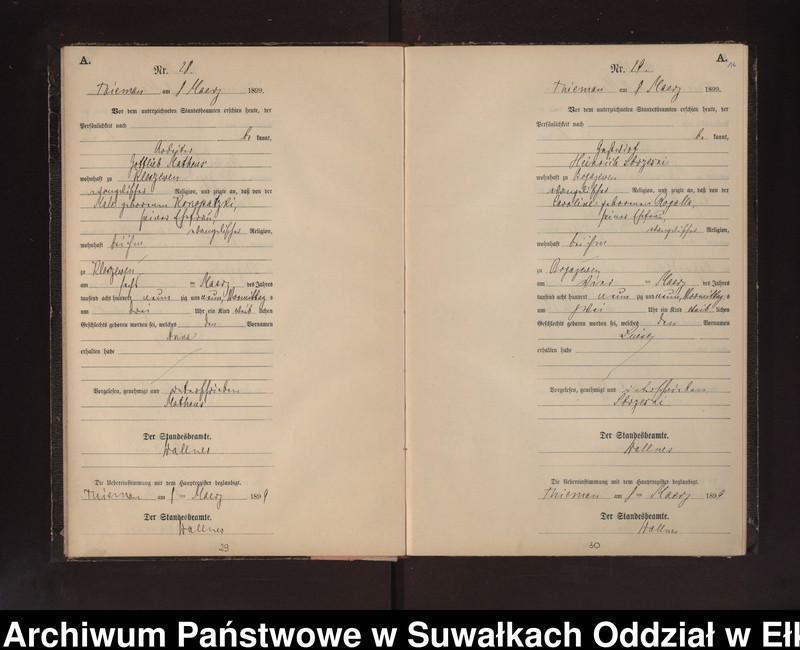 A.
Nr. 28.
Thieman am 8 Maerz 1899.
Vor dem unterzeichneten Standesbeamten erschien heute, der
Persönlichkeit nach
be kannt,
Arbeiter
Gottlieb Matheus
wohnhaft zu Kleszewen
evangelischer Religion, und zeigte an, daß von der
geborenen Konopatzki,
seiner Ehefrau,
evangelischer Religion,
wohnhaft bei ihm
zu Kleszewen
am sechs ten Maerz des Jahres
tausend acht hundert neun zig und neun, Vormittag s
um drei Uhr ein Kind weib lichen
Geschlechts geboren worden sei, welches den Vornamen
Anna
erhalten habe
Vorgelesen, genehmigt und unterschrieben
Matheus
Der Standesbeamte.
Wallner
Die Uebereinstimmung mit dem Hauptregister beglaubigt.
Thieman am 8 ten Maerz 1899
Der Standesbeamte.
Wallner
29
A.
Nr. 29.
Thieman am 8 Maerz 1899.
Vor dem unterzeichneten Standesbeamten erschien heute, der
Persönlichkeit nach
be kannt,
Gastwirt
Heinrich
wohnhaft zu
evangelischer Religion, und zeigte an, daß von der
Caroline geborenen Rogalla,
seiner Ehefrau,
evangelischer Religion,
wohnhaft bei ihm
zu
am vier ten Maerz des Jahres
tausend acht hundert neun zig und neun, Vormittag s
um zwei Uhr ein Kind weib lichen
Geschlechts geboren worden sei, welches den Vornamen
Luise
erhalten habe
Vorgelesen, genehmigt und unterschrieben
Der Standesbeamte.
Wallner
Die Uebereinstimmung mit dem Hauptregister beglaubigt.
Thieman am 8 ten Maerz 1899
Der Standesbeamte.
Wallner
30
Archiwum Państwowe w Suwałkach Oddział w Ełk